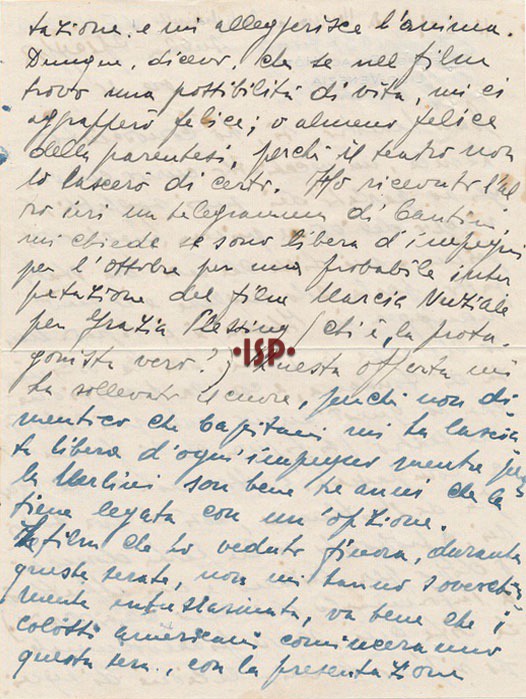 tazione; e mi alleggerisce l'anima.
Dunque, dicevo, che se nel film
trovo una possibilità di vita, mi ci
aggrapperò felice; o almeno felice
della parentesi, perchè il teatro non
lo lascerò di certo. Ho ricevuto l'al
ro ieri un telegramma di Cantini,
mi chiede se sono libera d'impegni
per l'Ottobre per una probabile inter
petazione del film Marcia Nuziale
per Grazia Plessing (chi è, la prota-
gonista vero?) Questa offerta mi
ha sollevato il cuore, perchè non di
mentico che Capitani mi ha lascia
ta libera d'ogni impegno mentre per
la Merlini son bene tre anni che la
tiene legata con un'opzione.
film che ho veduto finora, durante
queste serate, non mi hanno soverchia
mente entusiasmata, va bene che i
colossi americani cominceranno
questa sera, con la presentazione
ISP